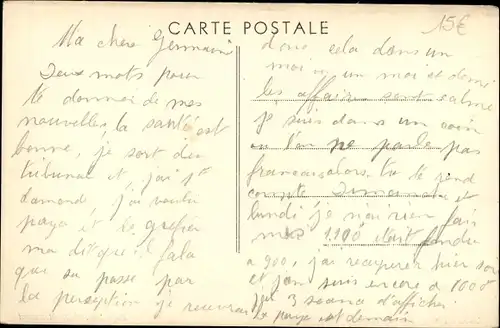 CARTE POSTALE
15€
Ma chère Germaine
Deux mots pour
te donner de mes
nouvelles, la santé est
bonne, je sort du
tribunal et j'ai
demandé j'ai voulu
payé et le greffier
m'a dit que il
que sa passe par
la perception je recevrai
donc cela dans un
mois un mois et demi
les affaires sont calme
je suis dans un coin
ou l'on ne parle pas
francais alors tu te rend
compte Dimanche et
lundi je n'ai rien fait
mes 1100 était fondu
a 900, j'ai recuperer hier soir
et j'en suis encore a 1000
3 d'afficher
je paye et demain